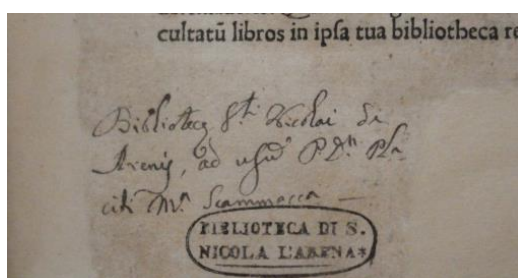 cultatū libros in ipſa tua bibliotheca re
Bibliotecę S.ti Nicolai di
Arenis, ad usū P. D.n Pla-
citi M.a Scammacca —
BIBLIOTECA DI S.
NICOLA L'ARENA*